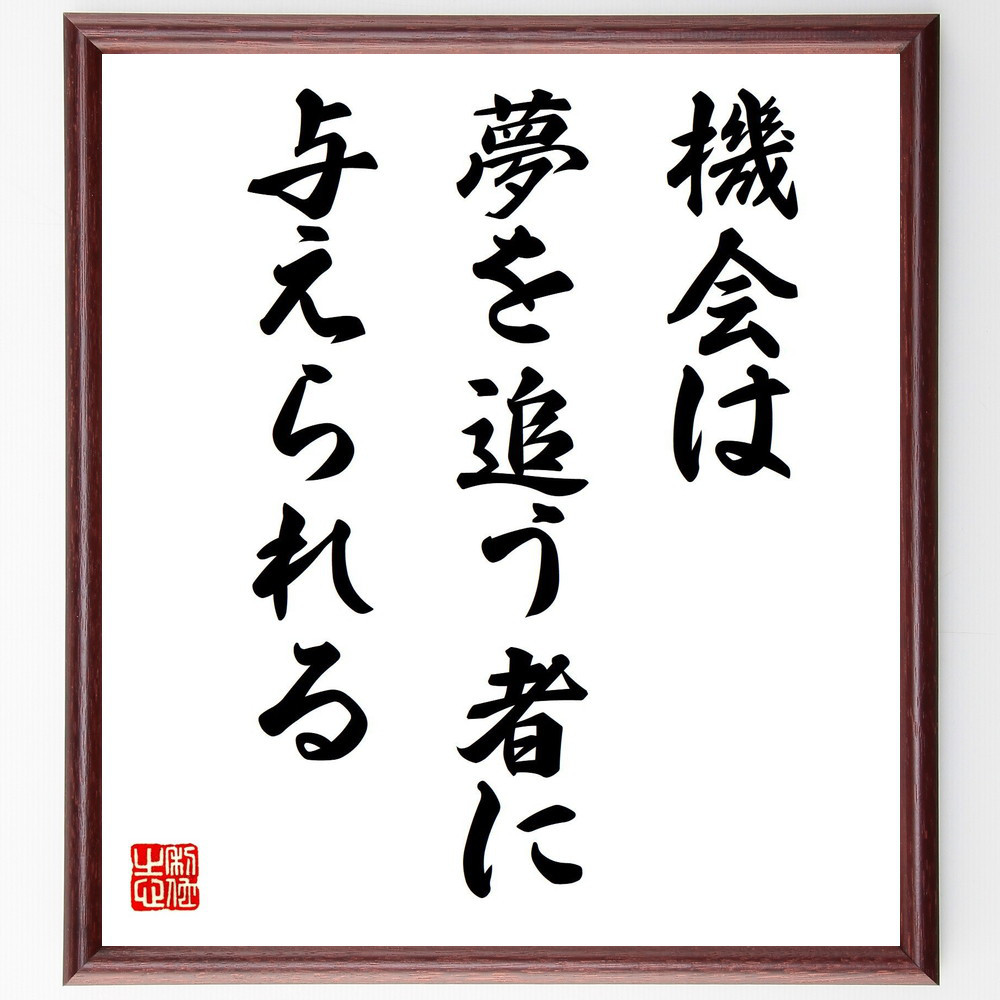 機会は
夢を追う者に
与えられる